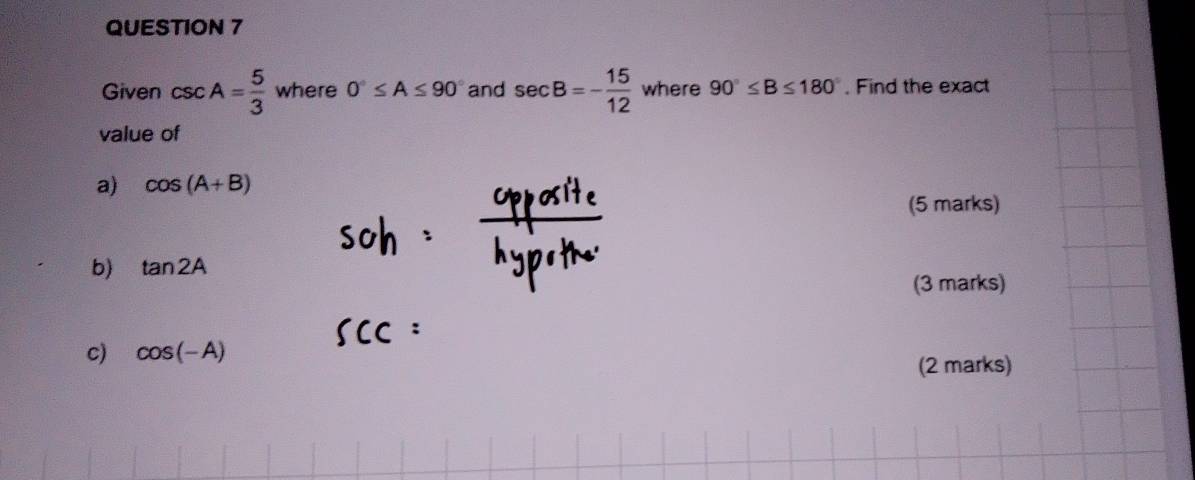 QUESTION 7
Given csc A = 5/3 where 0° ≤ A ≤ 90° and sec B = - 15/12 where 90° ≤ B ≤ 180°. Find the exact
value of
a) cos (A + B)
(5 marks)
soh : opposite / hypothe
b) tan 2A
(3 marks)
scc :
c) cos(-A)
(2 marks)